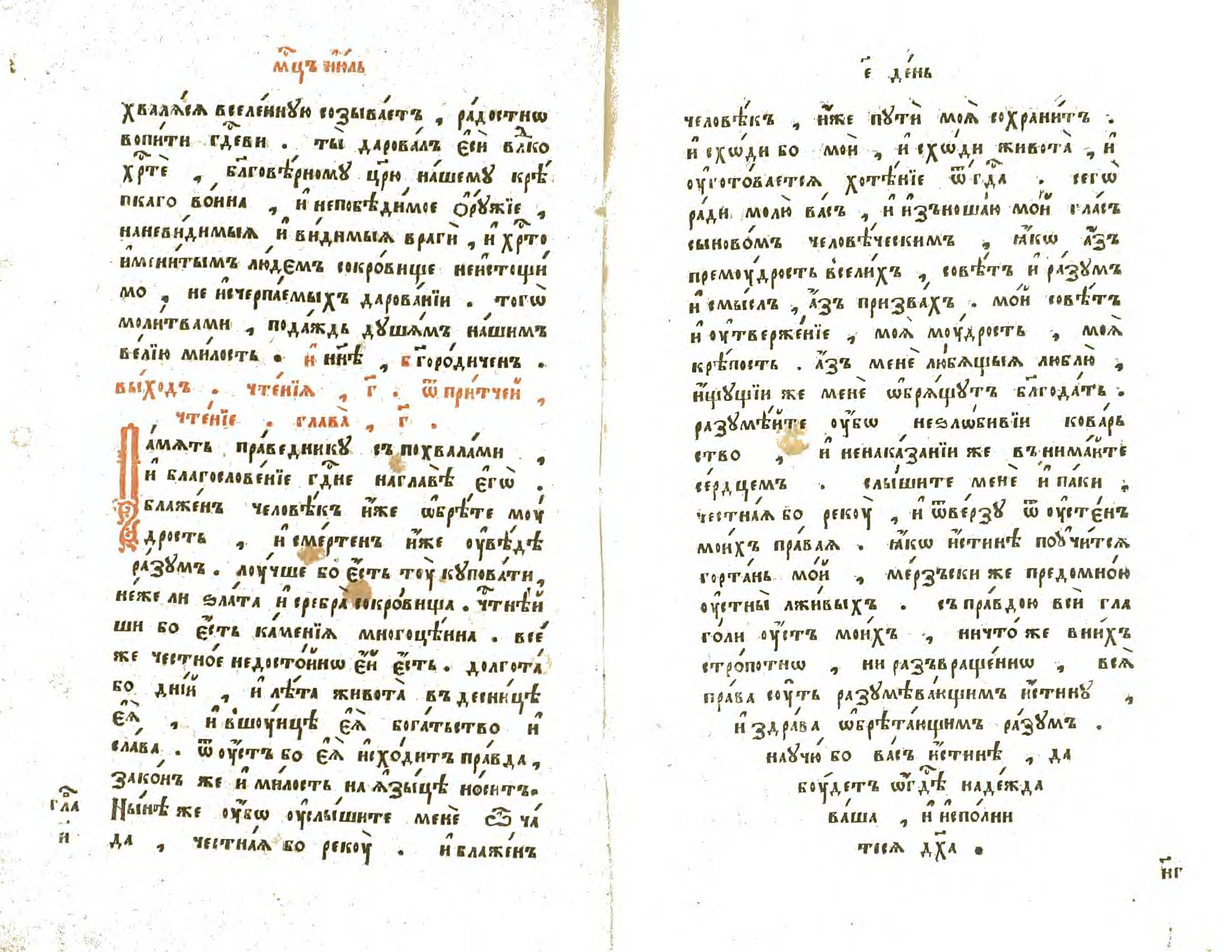 мⷭ҇цъ і҆ю́ль
хваля́сѧ вселе́нную созыва́етъ , ра́достнѡ
вопи́ти гдⷭ҇еви . ты̀ дарова́лъ є҆сѝ влⷣко
хрⷭ҇тѐ , бл҃гове́рному цр҃ю на́шему крѣ́
пкаго во́ина , и҆ непобѣди́мое ѻ҆рꙋ́жїе ,
наневи́димыѧ и҆ ви́димыѧ врагѝ , и҆ хрⷭ҇то
и҆мени́тымъ лю́демъ сокро́вище неистощи́
мо , не и҆счерпа́емыхъ дарова́нїи . тогѡ̀
моли́твами , пода́ждь дꙋша́мъ на́шимъ
ве́лїю ми́лость . и҆ нн҃ѣ , бг҃оро́диченъ .
вы́ходъ . чте́нїѧ , г҃ . ѿ при́тчей ,
чте́нїе . глава̀ , г҃ .
Па́мѧть пра́ведникꙋ съ похвала́ми ,
и҆ благослове́нїе гдⷭ҇не наглавѣ̀ є҆гѡ̀ .
блаже́нъ человѣ́къ и҆́же ѡ҆брѣ́те моу́
дрость , и҆ сме́ртенъ и҆́же оу҆вѣ́дѣ
ра́зꙋм . лоу́чше бо є҆́сть тоу̀ кꙋпова́ти ,
не́же ли ѕла́та и҆ сребра̀ сокро́вища . чⷭ҇тнѣ́й
ши бо є҆́сть ка́менїѧ многоцѣ́нна . все́
же честно́е недосто́йнѡ є҆́й є҆́сть . долгота̀
бо дні́й , и҆ лѣ́та живота̀ въ десни́цѣ
є҆ѧ̀ , и҆ в шоу́ицѣ є҆ѧ̀ бога́тьство и҆
сла́ва . ѿ оу҆́стъ бо є҆ѧ̀ и҆схо́дитъ пра́вда ,
зако́нъ же и҆ ми́лость на ѧ҆зы́цѣ но́ситъ .
гла
и҃
Ны́нѣ же оу҆́бѡ оу҆слы́шите менѐ ѽ ча́
да , честна́ѧ бо рекоу̀ . и҆ блаже́нъ
є҃ де́нь
человѣ́къ , и҆́же пꙋтѝ моѧ̀ сохрани́тъ .
и҆ схѡ́ди бо моѝ , и҆ схѡ́ди живота̀ , и҆
оу҆гото́ваетсѧ хотѣ́нїе ѿ гдⷭ҇а . сегѡ̀
ра́ди молю̀ ва́съ , и҆ и҆зъноша́ю мо́й гла́съ
сыново́мъ человѣ́ческимъ , ꙗ҆́кѡ а҆́зъ
премоу́дрость вселѝхъ , совѣ́тъ и҆ ра́зꙋмъ
и҆ смы́слъ , а҆́зъ призва́хъ . мо́й совѣ́тъ
и҆ оу҆твержє́нїе , моѧ̀ моу́дрость , моѧ̀
крѣ́пость . а҆́зъ менѐ лю́бѧщыѧ люблю̀ ,
и҆́щꙋщїи же менѐ ѡ҆брѧ́щꙋтъ бл҃года́ть .
разꙋмѣ́йте оу҆́бѡ неѕло́бивїи кова́рь
ство , и҆ ненака́занїи же въ нима́йте
се́рдцемъ . слы́шите менѐ и҆ па́ки ;
честна́ѧ бо рекоу̀ , и҆ ѿве́рзꙋ ѿ оу҆сте́нъ
мои́хъ пра́ваѧ . ꙗ҆́кѡ и҆́стинѣ поꙋчи́тсѧ
горта́нь мо́й , ме́рзъски же предомно́ю
оу҆стны̀ лжи́выхъ . съ пра́вдою всѝ гла
го́ли оу҆́стъ мои́хъ , ничто́ же вни́хъ
стро́потнѡ , ни разъвраще́ннѡ , всѧ̀
пра́ва соу́ть разꙋмѣва́ющимъ и҆́стинꙋ ,
и҆ здра́ва ѡ҆брѣта́ющимъ ра́зꙋмъ .
наꙋчю́ бо ва́съ и҆́стинѣ , да
боу́детъ ѡ҆ гдⷭ҇ѣ наде́жда
ва́ша , и҆ и҆спо́лни
тесѧ дх҃а .
н҃г